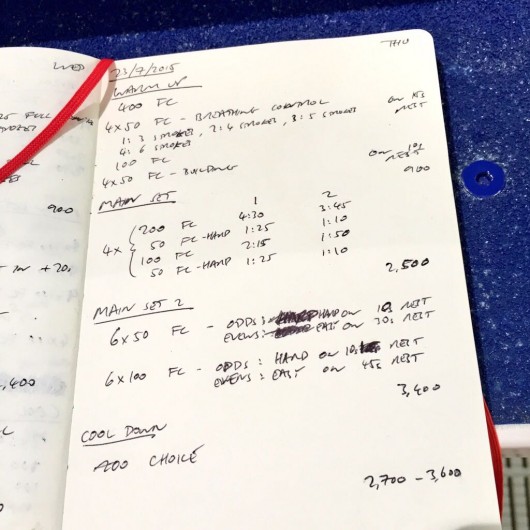 WED
THU
23/7/2015
WARM UP
400 FC
4x50 FC - BREATHING CONTROL ON 15s REST
1: 3 STROKES, 2: 4 STROKES, 3: 5 STROKES
4: 6 STROKES
100 FC
4x50 FC - BUILDING ON 10s REST
900
MAIN SET
1 2
4x { 200 FC 4:30 3:45
50 FC - HARD 1:25 1:10
100 FC 2:15 1:50
50 FC - HARD 1:25 1:10
2,500
MAIN SET 2
6x50 FC - ODDS: HARD ON 10s REST
EVENS: EASY ON 30s REST
6x100 FC - ODDS: HARD ON 10s REST
EVENS: EASY ON 45s REST
3,400
COOL DOWN
200 CHOICE
2,700 - 3,600
25 FULL
900
+20s
,400